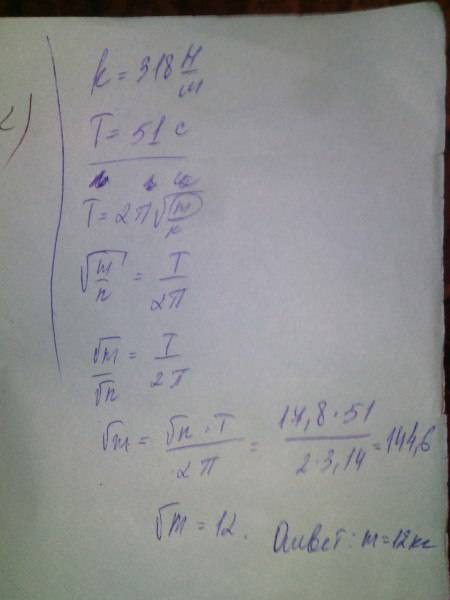 2)
k = 318 Н/м
T = 51 с
T = 2π√(m/к)
√(m/к) = T/2π
√m/√к = T/2π
√m = √к · T / 2π = 17,8 · 51 / 2 · 3,14 = 144,6
√m = 12.
Ответ: m = 12 кг